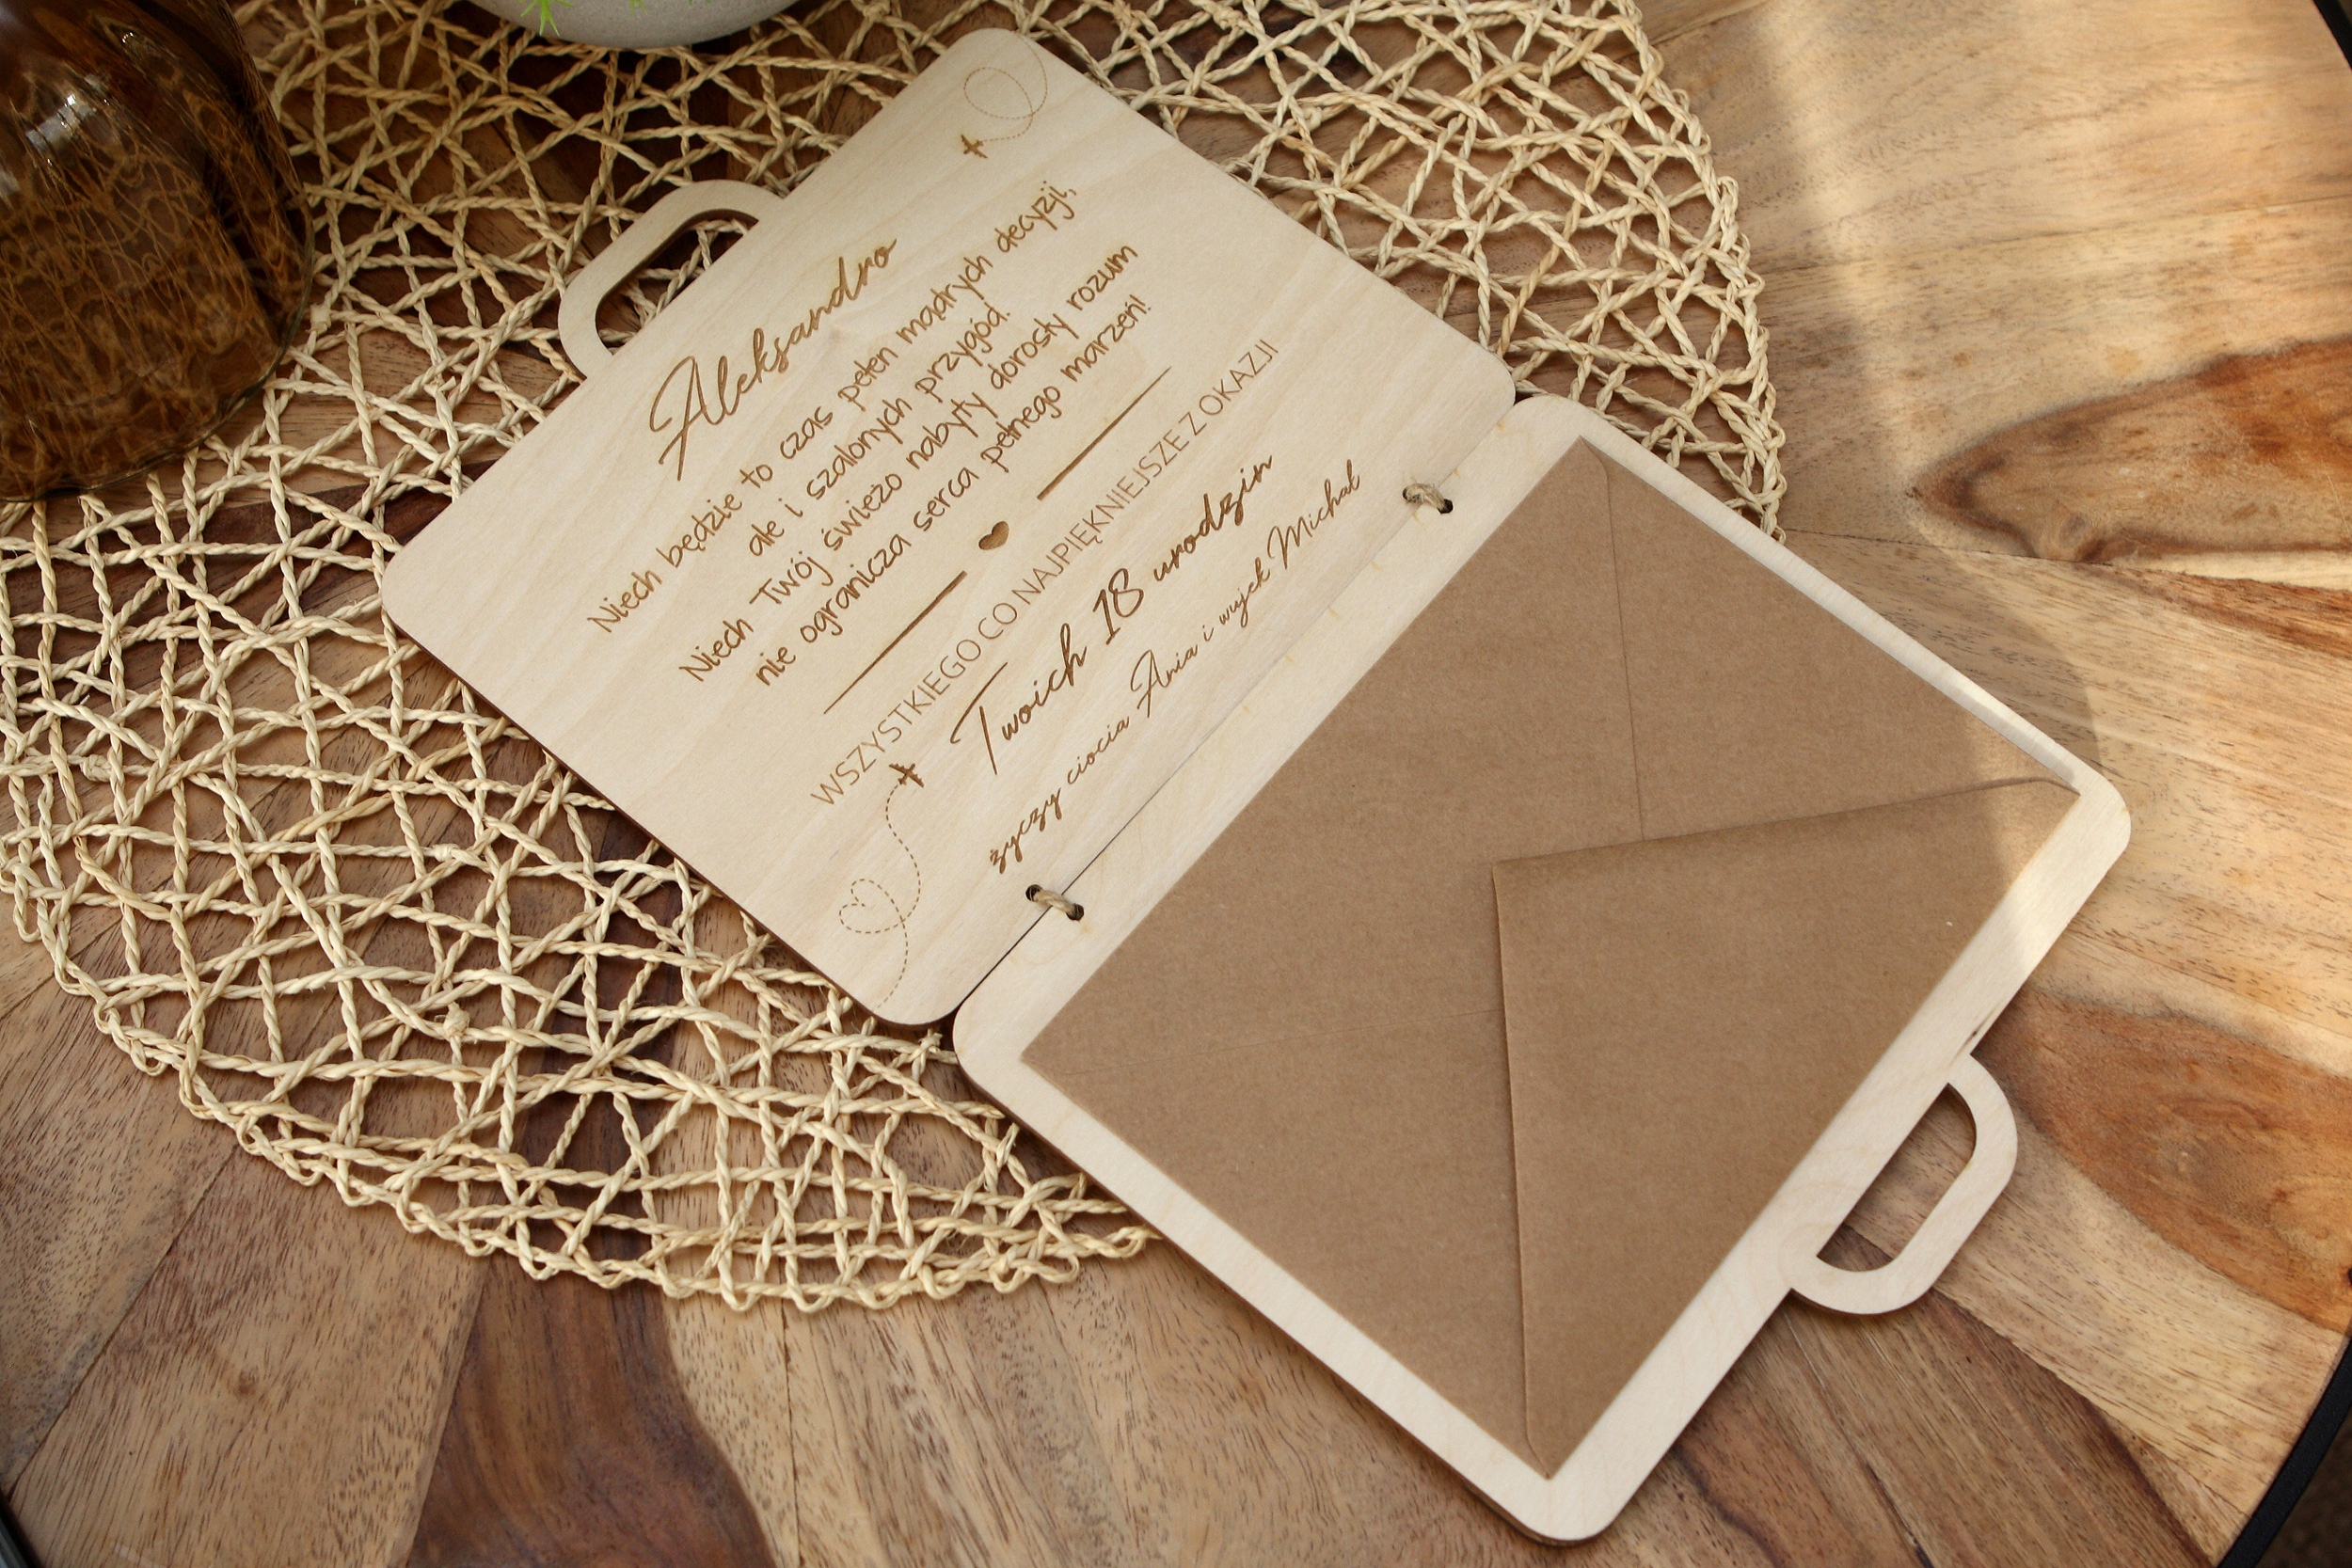 Aleksandro
Niech będzie to czas pełen mądrych decyzji,
ale i szalonych przygód.
Niech Twój świeżo nabyty dorosły rozum
nie ogranicza serca pełnego marzeń!
WSZYSTKIEGO CO NAJPIĘKNIEJSZE Z OKAZJI
Twoich 18 urodzin
życzy ciocia Ania i wujek Michał